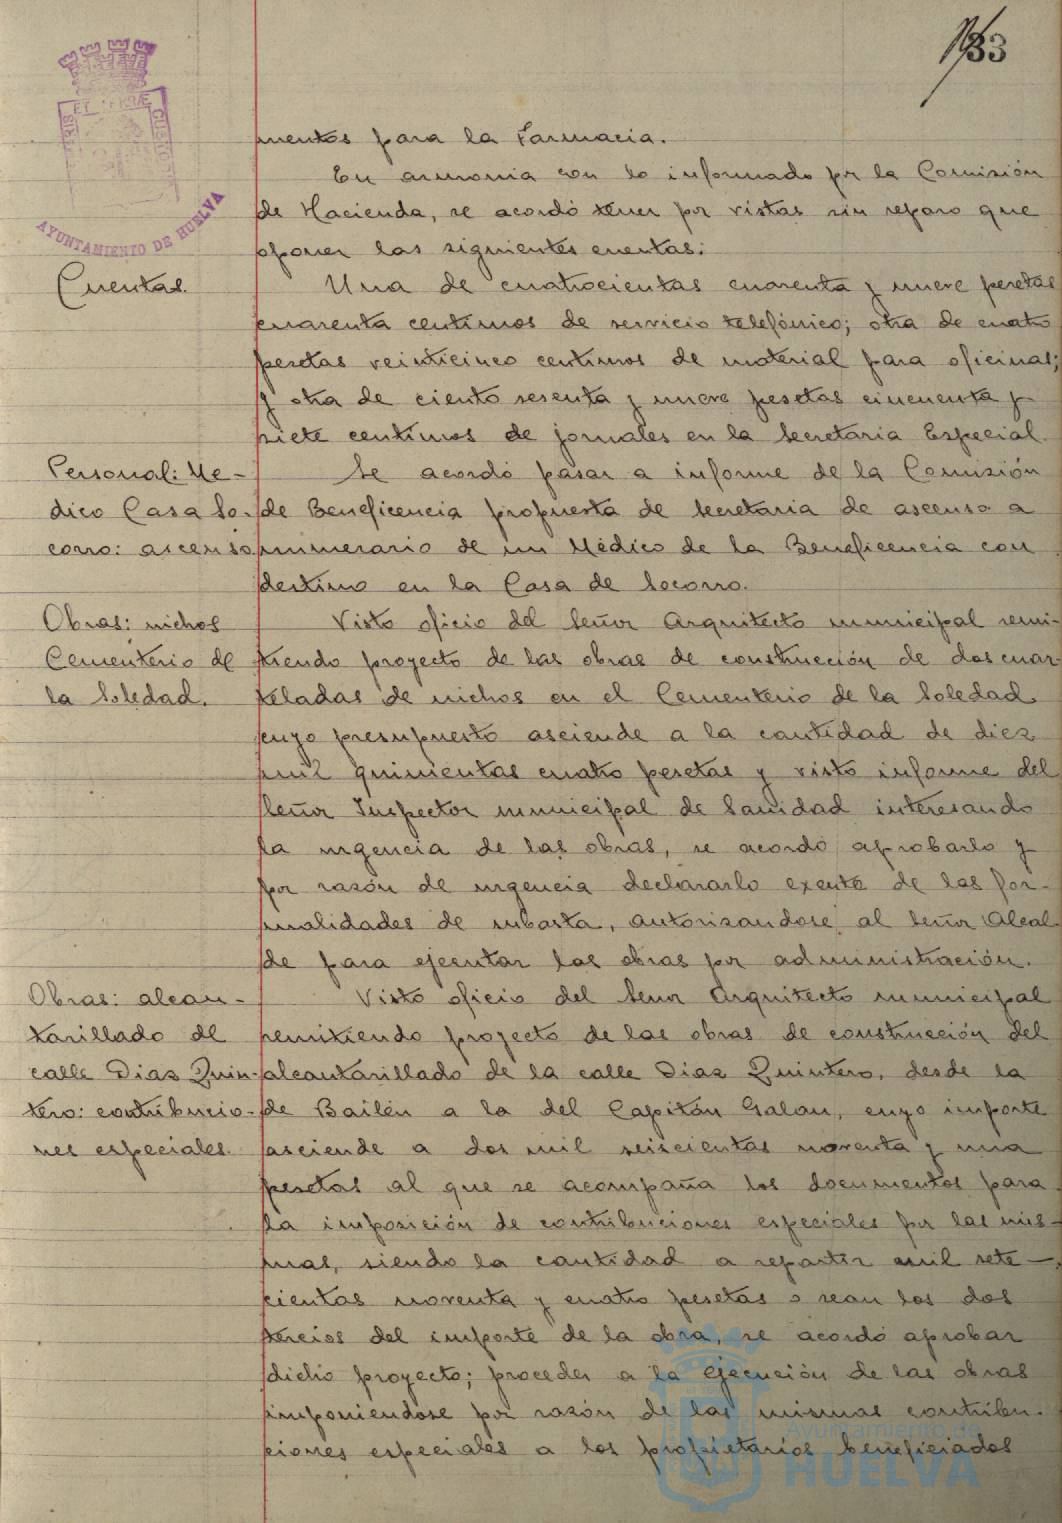 33
AYUNTAMIENTO DE HUELVA
mentos para la Farmacia.
En armonia con lo informado pr la Comisión
de Hacienda, se acordó tener por vistas sin reparo que
oponer las siguientes cuentas:
Cuentas.
Una de cuatrocientas cuarenta y nueve pesetas
cuarenta centimos de servicio telefónico; otra de cuatro
pesetas veinticinco centimos de material para oficinas;
y otra de ciento sesenta y nueve pesetas cincuenta y
siete centimos de jornales en la Secretaria Especial.
Personal: Me-
dico Casa So-
corro: ascenso
Se acordó pasar a informe de la Comisión
de Beneficencia propuesta de Secretaria de ascenso a
numerario de un Médico de la Beneficencia con
destino en la Casa de Socorro.
Obras: nichos
Cementerio de
la Soledad.
Visto oficio del Señor Arquitecto municipal remi-
tiendo proyecto de las obras de construcción de dos cuar-
teladas de nichos en el Cementerio de la Soledad
cuyo presupuesto asciende a la cantidad de diez
mil quinientas cuatro pesetas y visto informe del
Señor Inspector municipal de Sanidad interesando
la urgencia de las obras, se acordó aprobarlo y
por razón de urgencia declararlo exento de las for-
malidades de subasta, autorizandose al Señor Alcal-
de para ejecutar las obras por administración.
Obras: alcan-
tarillado de
calle Diaz Quin-
tero: contribucio-
nes especiales.
Visto oficio del Senor Arquitecto municipal
remitiendo proyecto de las obras de construcción del
alcantarillado de la calle Diaz Quintero, desde la
de Bailén a la del Capitán Galan, cuyo importe
asciende a dos mil seiscientas noventa y una
pesetas al que se acompaña los documentos para
la imposición de contribuciones especiales por las mis-
mas, siendo la cantidad a repartir mil sete-
cientas noventa y cuatro pesetas o sean los dos
tercios del importe de la obra, se acordó aprobar
dicho proyecto; proceder a la ejecución de las obras
imponiendose por razón de las mismas contribu-
ciones especiales a los propietarios beneficiados
Ayuntamiento de
HUELVA